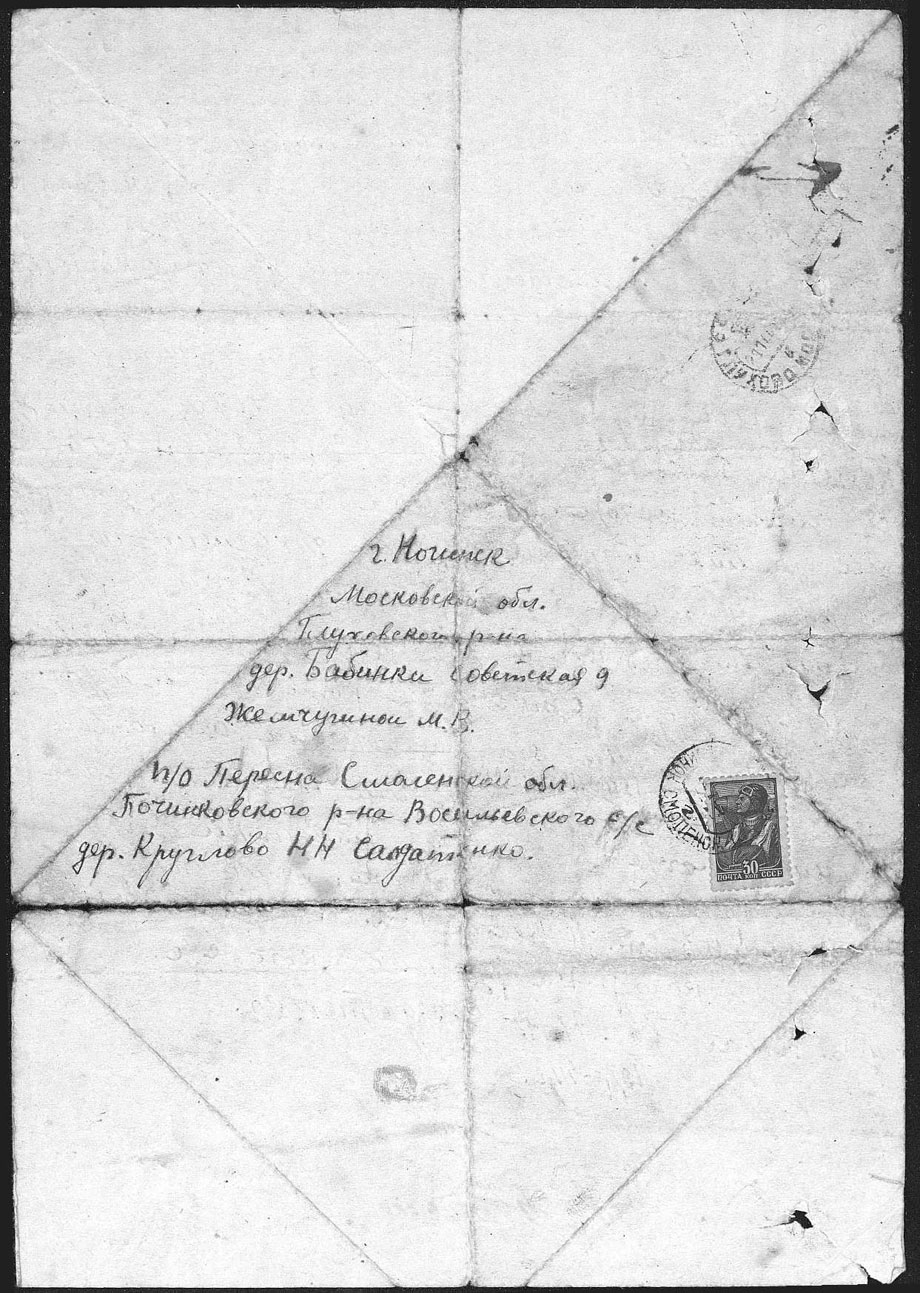 г. Ногинск
Московской обл.
Глуховского р-на
дер. Бабинки Советская 9
Жемчугиной М.В.
п/о Пересна Смоленской обл.
Починковского р-на Васильевского с/с
дер. Круглово НН Салдатенко.
30
ПОЧТА КОП СССР
ГЛУХОВО